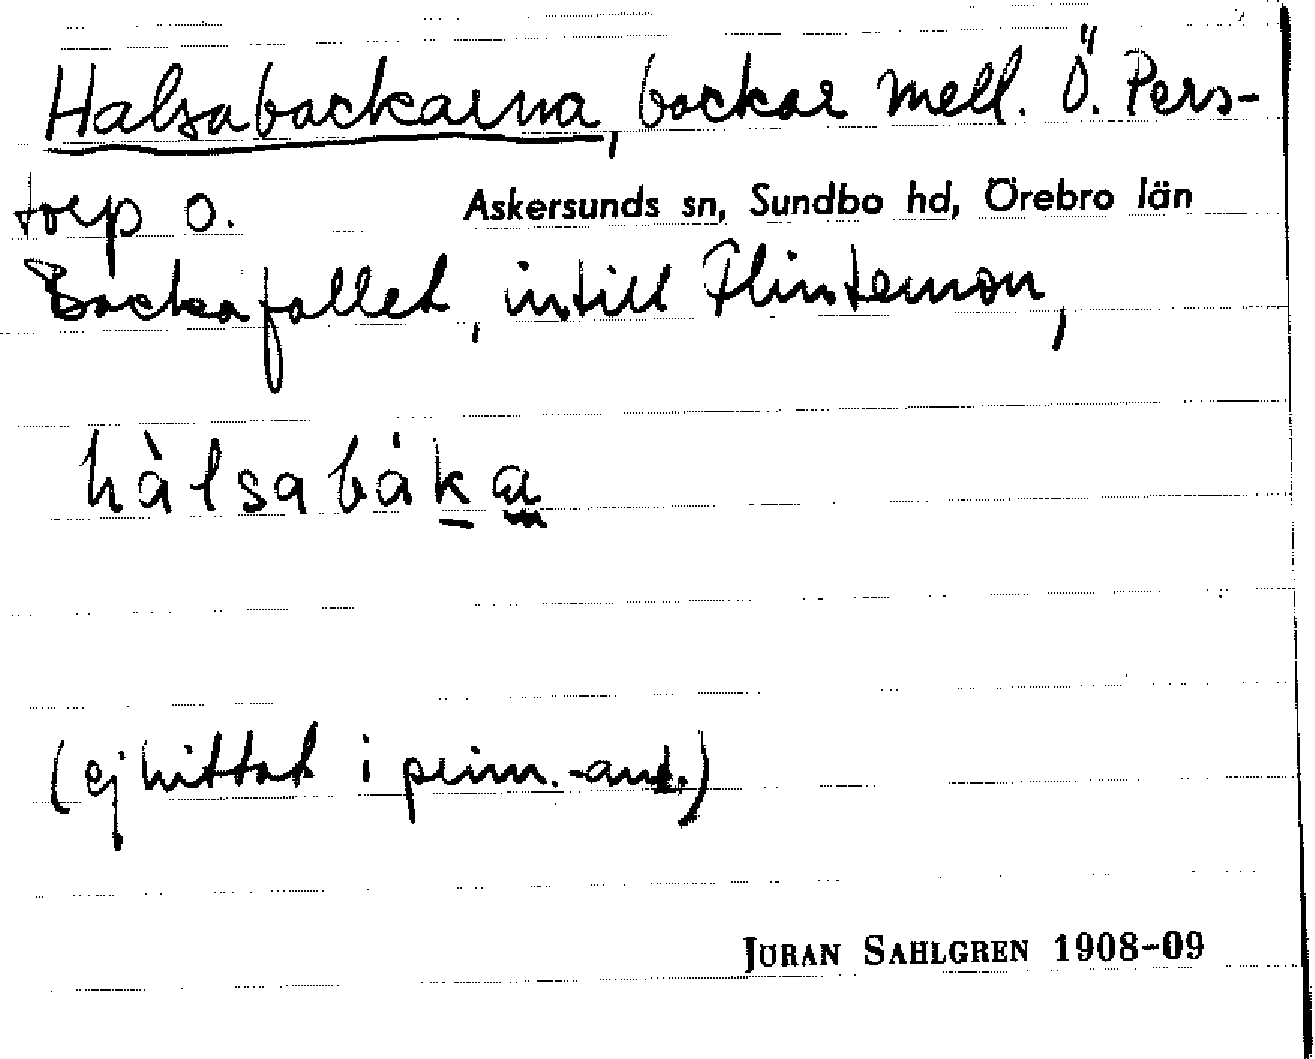 Halsabackarna, backar mell. Ö. Pers-
torp o. Askersunds sn, Sundbo hd, Örebro län
Backafallet, intill Flintemon,
hàlsabáka
(ej hittat i prim.-ant.)
JÖRAN SAHLGREN 1908-09